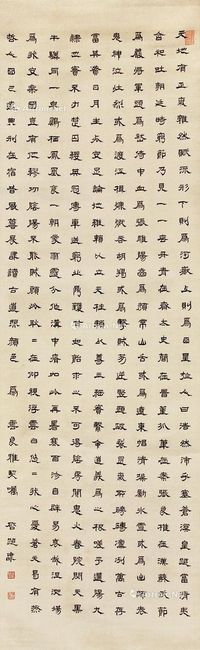 天地有正氣雜然賦流形下則為河嶽上則為日星於人曰浩然沛乎塞蒼冥皇路當清夷
含和吐明廷時窮節乃見一一垂丹青在齊太史簡在晉董狐筆在秦張良椎在漢蘇武節
為嚴將軍頭為嵇侍中血為張睢陽齒為顏常山舌或為遼東帽清操厲冰雪或為出師表
鬼神泣壯烈或為渡江楫慷慨吞胡羯或為擊賊笏逆豎頭破裂是氣所磅礴凜烈萬古存
當其貫日月生死安足論地維賴以立天柱賴以尊三綱實繫命道義為之根嗟予遘陽九
隸也實不力楚囚纓其冠傳車送窮北鼎鑊甘如飴求之不可得陰房闃鬼火春院閟天黑
牛驥同一皂雞棲鳳凰食一朝蒙霧露分作溝中瘠如此再寒暑百沴自辟易哀哉沮洳場
為我安樂國豈有他繆巧陰陽不能賊顧此耿耿在仰視浮雲白悠悠我心悲蒼天曷有極
哲人日已遠典刑在夙昔風簷展書讀古道照顏色 為 雲良雅契屬